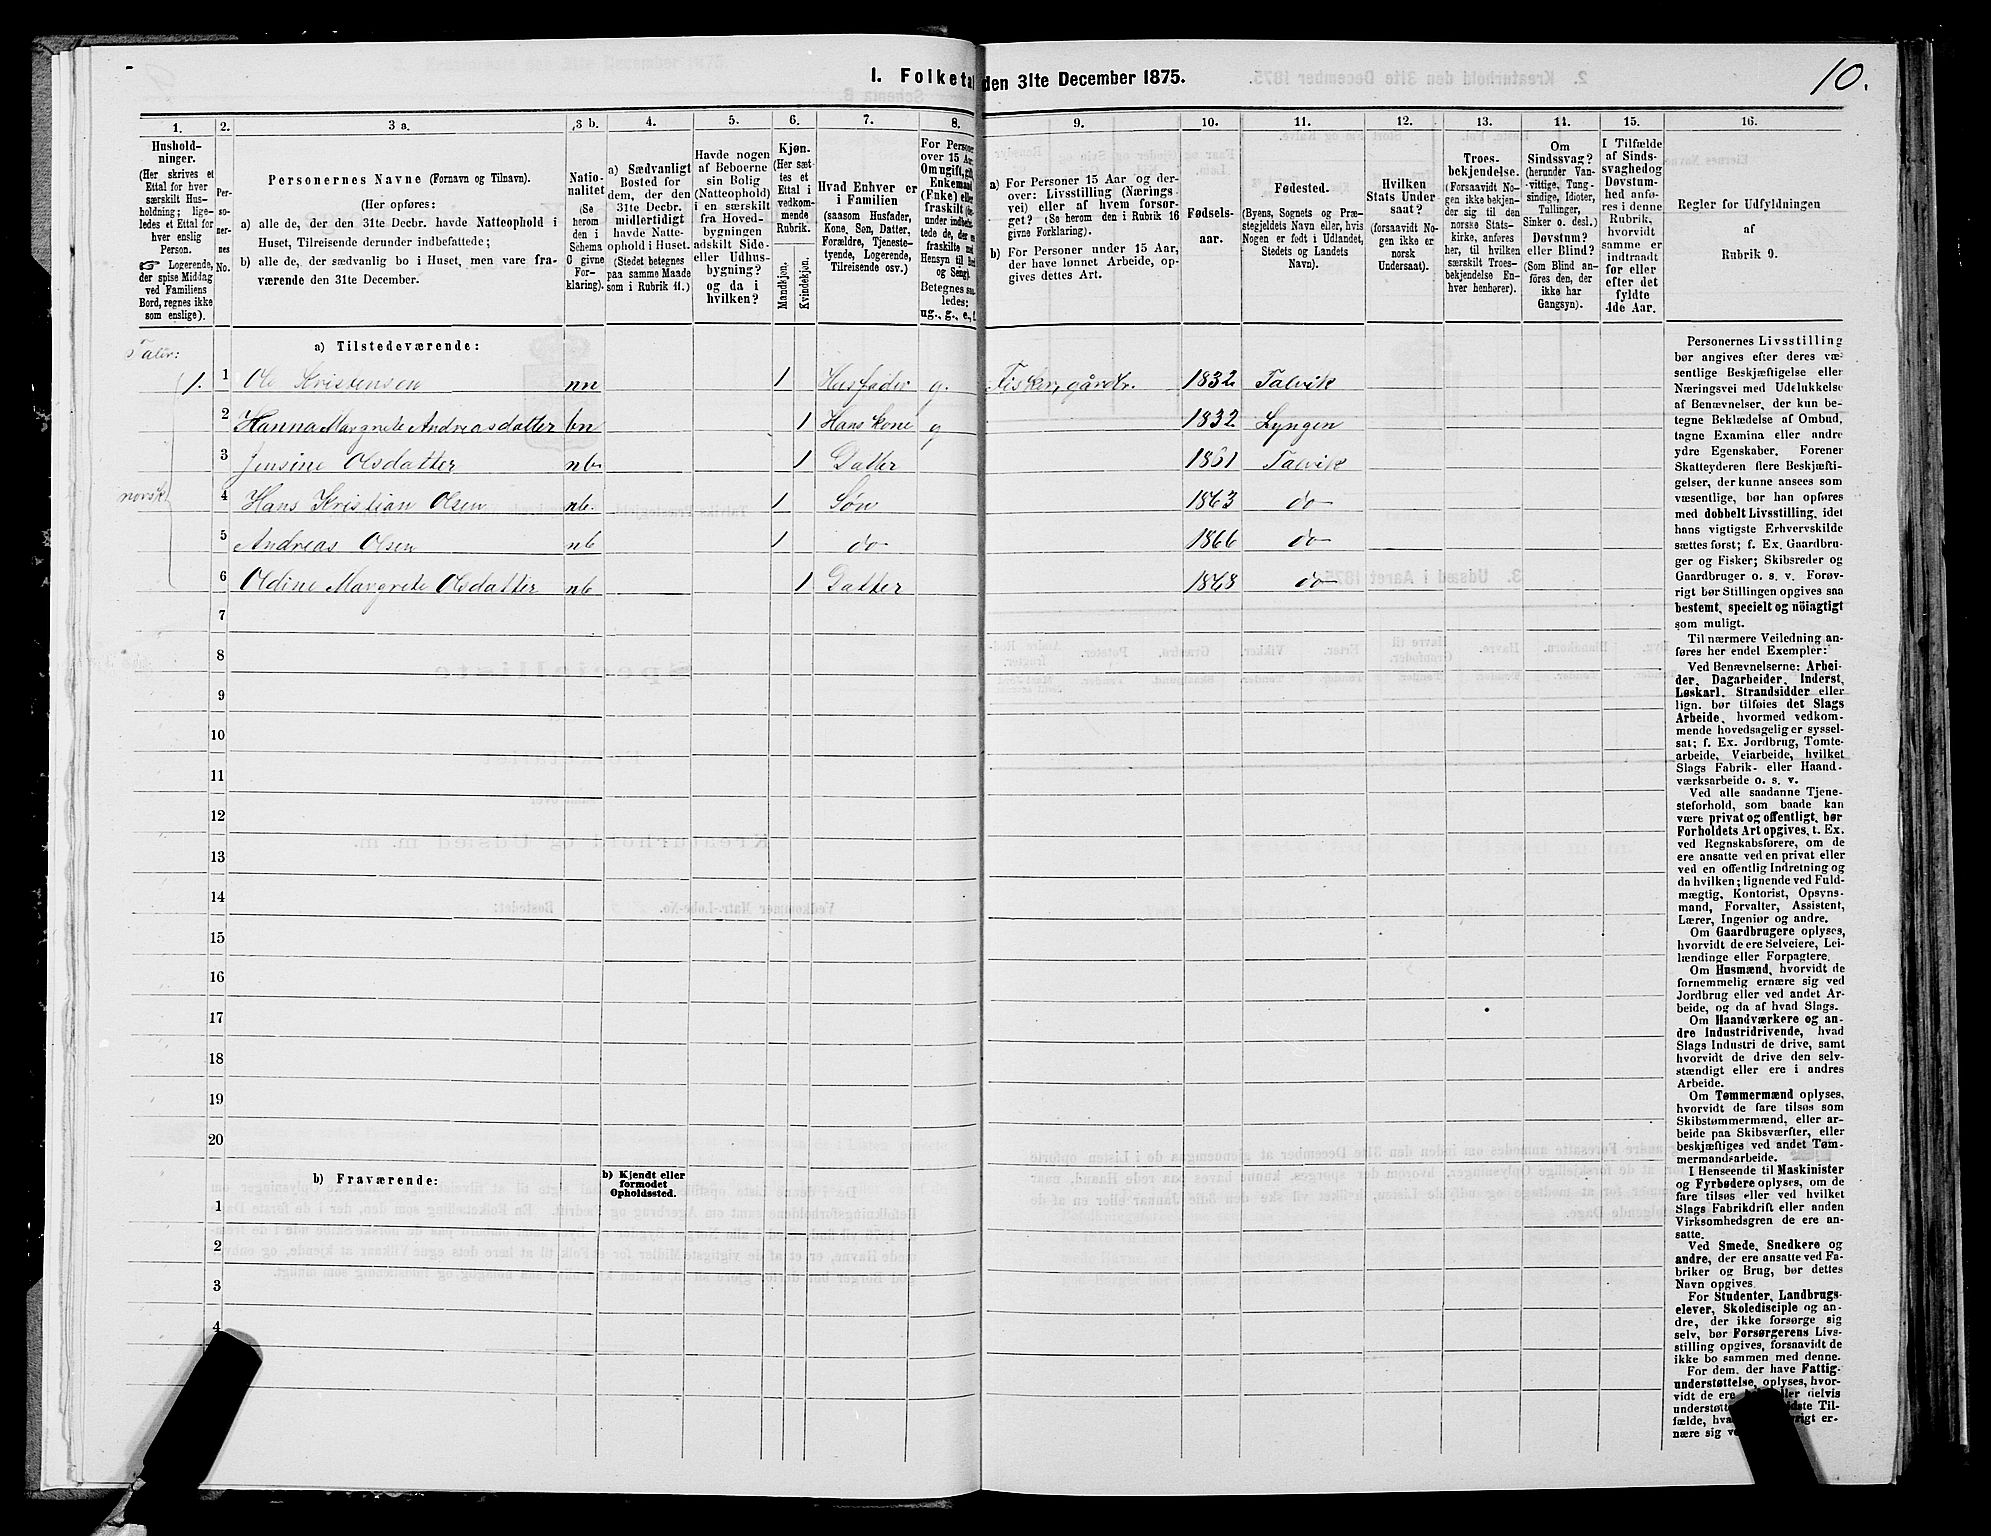 1. Folketal den 31te December 1875.
10.
1. 2. 3 a. 3 b. 4. 5. 6. 7. 8. 9. 10. 11. 12. 13. 14. 15. 16.
Hushold-
ninger.
(Her skrives et
Ettal for hver
særskilt Hus-
holdning; lige-
ledes et Ettal for
hver enslig
Person.
☞ Logerende,
der spise Middag
ved Familiens
Bord, regnes ikke
som enslige).
Per-
so-
ner-
nes
No.
Personernes Navne (Fornavn og Tilnavn).
(Her opføres:
a) alle de, der den 31te Decbr. havde Natteophold i
Huset, Tilreisende derunder indbefattede;
b) alle de, der sædvanlig bo i Huset, men vare fra-
værende den 31te December.
Natio-
nalitet
(Se
herom
den i
Schema
C givne
For-
klaring).
a) Sædvanligt
Bosted for
dem, der den
31te Decbr.
midlertidigt
havde Natte-
ophold i Huset.
(Stedet betegnes
paa samme Maade
som i Rubrik 11.)
Havde nogen
af Beboerne
sin Bolig
(Natteophold)
i en særskilt
fra Hoved-
bygningen
adskilt Side-
eller Udhus-
bygning?
og da i
hvilken?
Kjøn.
(Her sæt-
tes et
Ettal i
vedkom-
mende
Rubrik.
Mandkjøn.
Kvindekjøn.
Hvad Enhver er
i Familien
(saasom Husfader,
Kone, Søn, Datter,
Forældre, Tjeneste-
tyende, Logerende,
Tilreisende osv.)
For Persone
over 15 Aar
Om ugift, gif
Enkemand
(Enke) eller
fraskilt
Betegnes saa-
ledes:
ug., g., e., f.
a) For Personer 15 Aar og der-
over: Livsstilling (Nærings-
vei) eller af hvem forsør-
get? (Se herom den i Rubrik 16
givne Forklaring).
b) For Personer under 15 Aar,
der have lønnet Arbeide, op-
gives dettes Art.
Fødsels-
aar.
Fødested.
(Byens, Sognets og Præ-
stegjeldets Navn eller, hvis
Nogen er født i Udlandet,
Stedets og Landets
Navn).
Hvilken
Stats Under-
saat?
(forsaavidt No-
gen ikke er
norsk
Undersaat).
Troes-
bekjendelse.
(Forsaavidt No-
gen ikke bekjen-
der sig til den
norske Stats-
kirke, anføres
her, til hvilken
særskilt Troes-
bekjendelse En-
hver henhører).
Om
Sindssvag?
(herunder Van-
vittige, Tung-
sindige, Idioter,
Tullinger,
Sinker o. desl.)
Døvstum?
eller Blind?
(Som Blind an-
føres den, der
ikke har
Gangsyn).
I Tilfælde
af Sinds-
svaghed og
Døvstum-
hed anfø-
res i denne
Rubrik,
hvorvidt
samme er
indtraadt
før eller
efter det
fyldte
4de Aar.
Regler for Udfyldningen
af
Rubrik 9.
a) Tilstedeværende:
Taler:
1. 1 Ole Kristensen nn 1 Husfader g. Fisker, gårdbr. 1832 Talvik
2 Hanna Margrete Andreasdatter bn 1 Hans kone g 1832 Lyngen
3 Jensine Olsdatter nb 1 Datter 1861 Talvik
norsk 4 Hans Kristian Olsen nb. 1 Søn 1863 do
5 Andreas Olsen nb 1 do 1866 do
6 Oldine Margrete Olsdatter nb 1 Datter 1868 do
7
8
9
10
11
12
13
14
15
16
17
18
19
20
b) Fraværende:
b) Kjendt eller
formodet
Opholdssted.
1
2
3
4
Personernes Livsstilling
bør angives efter deres væ-
sentlige Beskjæftigelse eller
Næringsvei med Udelukkelse
af Benævnelser, der kun be-
tegne Beklædelse af Ombud,
tagne Examina eller andre
ydre Egenskaber. Forener
Skatteyderen flere Beskjæfti-
gelser, der kunne ansees som
væsentlige, bør han opføres
med dobbelt Livsstilling, idet
hans vigtigste Erhvervskilde
sættes først; f. Ex. Gaardbru-
ger og Fisker; Skibsreder og
Gaardbruger o. s. v. Forøv-
rigt bør Stillingen opgives saa
bestemt, specielt og nöiagtigt
som muligt.
Til nærmere Veiledning an-
føres her endel Exempler:
Ved Benævnelserne: Arbei-
der, Dagarbeider, Inderst,
Løskarl, Strandsidder eller
lign. bør tilføies det Slags
Arbeide, hvormed vedkom-
mende hovedsagelig er syssel-
sat; f. Ex. Jordbrug, Tomte-
arbeide, Veiarbeide, hvilket
Slags Fabrik- eller Haand-
værksarbeide o. s. v.
Ved alle saadanne Tjene-
steforhold, som baade kan
være privat og offentligt, bør
Forholdets Art opgives, t. Ex.
ved Regnskabsførere, om de
ere ansatte ved en privat eller
ved en offentlig Indretning og
da hvilken; lignende ved Fuld-
mægtig, Kontorist, Opsyns-
mand, Forvalter, Assistent,
Lærer, Ingeniør og andre.
Om Gaardbrugere oplyses,
hvorvidt de ere Selveiere, Lei-
lændinge eller Forpagtere.
Om Husmænd, hvorvidt de
fornemmelig ernære sig ved
Jordbrug eller ved andet Ar-
beide, og da af hvad Slags.
Om Haandværkere og an-
dre Industridrivende, hvad
Slags Industri de drive, samt
hvorvidt de drive den selv-
stændigt eller ere i andres
Arbeide.
Om Tømmermænd oplyses,
hvorvidt de fare tilsøs som
Skibstømmermænd, eller ar-
beide paa Skibsværfter, eller
beskjæftiges ved andet Tøm-
mermandsarbeide.
I Henseende til Maskinister
og Fyrbødere oplyses, om de
fare tilsøs eller ved hvilket
Slags Fabrikdrift eller anden
Virksomhedsgren de ere an-
satte.
Ved Smede, Snedkere og
andre, der ere ansatte ved Fa-
briker og Brug, bør dettes
Navn opgives.
For Studenter, Landbrugs-
elever, Skoledisciple og an-
dre, der ikke forsørge sig
selv, bør Forsørgerens Livs-
stilling opgives, forsaavidt de
ikke bo sammen med denne.
For dem, der have Fattig-
understøttelse, oplyses, hvor-
vidt de ere eller delvis
understøtte idste Til-
fælde, hva vrigt er-
nære sig v